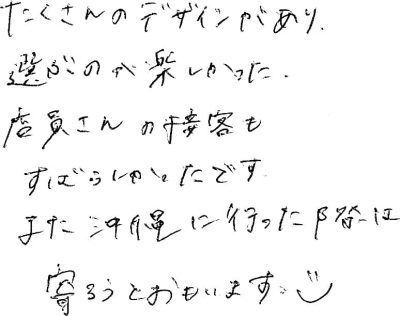 たくさんのデザインがあり、
選ぶのが楽しかった。
店員さんの接客も
すばらしかったです。
また沖縄に行った際は
寄ろうとおもいます。